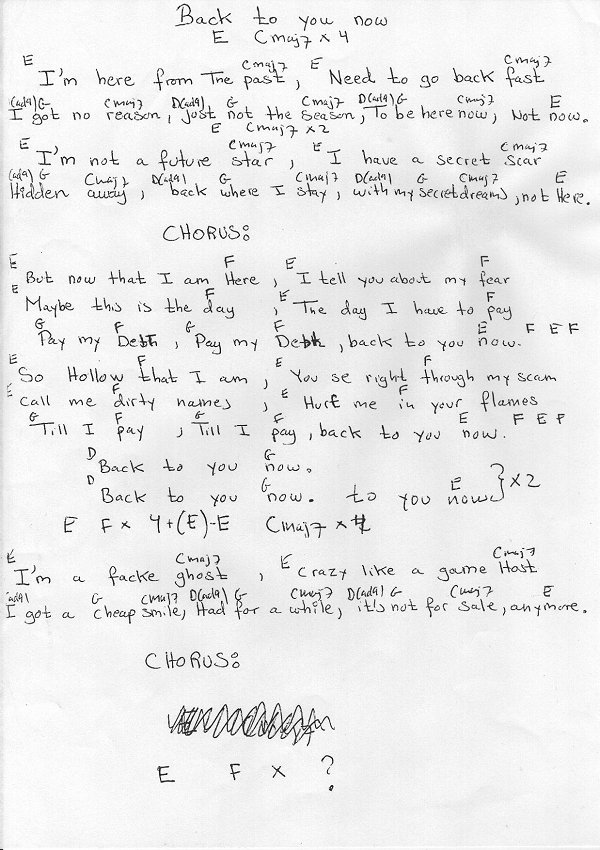 Back to you now
E Cmaj7 x 4
E Cmaj7 E Cmaj7
I'm here from The past, Need to go back fast
(ad9) G Cmaj7 D(ad9) G Cmaj7 D(ad9) G Cmaj7 E
I got no reason, just not the season, To be here now, Not now.
E Cmaj7 x2
E Cmaj7 E Cmaj7
I'm not a future star, I have a secret scar
(ad9) G Cmaj7 D(ad9) G Cmaj7 D(ad9) G Cmaj7 E
Hidden away, back where I stay, with my secret dreams, not Here.
CHORUS:
E F E F
But now that I am Here, I tell you about my fear
E F E F
Maybe this is the day, The day I have to pay
G F G F E F E F
Pay my Debth, Pay my Debth, back to you now.
E F E F
So Hollow that I am, You se right through my scam
E F E F
Call me dirty names, Hurt me in your flames
G F G F E F E F
Till I pay, Till I pay, back to you now.
D G
Back to you now.
D G E
Back to you now. to you now } x2
E F x 4+(E)-E Cmaj7 x
E Cmaj7 E Cmaj7
I'm a facke ghost, Crazy like a game Host
ad91 G Cmaj7 D(ad9) G Cmaj7 D(ad9) G Cmaj7 E
I got a cheap smile, Had for a while, it's not for sale, anymore.
CHORUS:
E F x ?